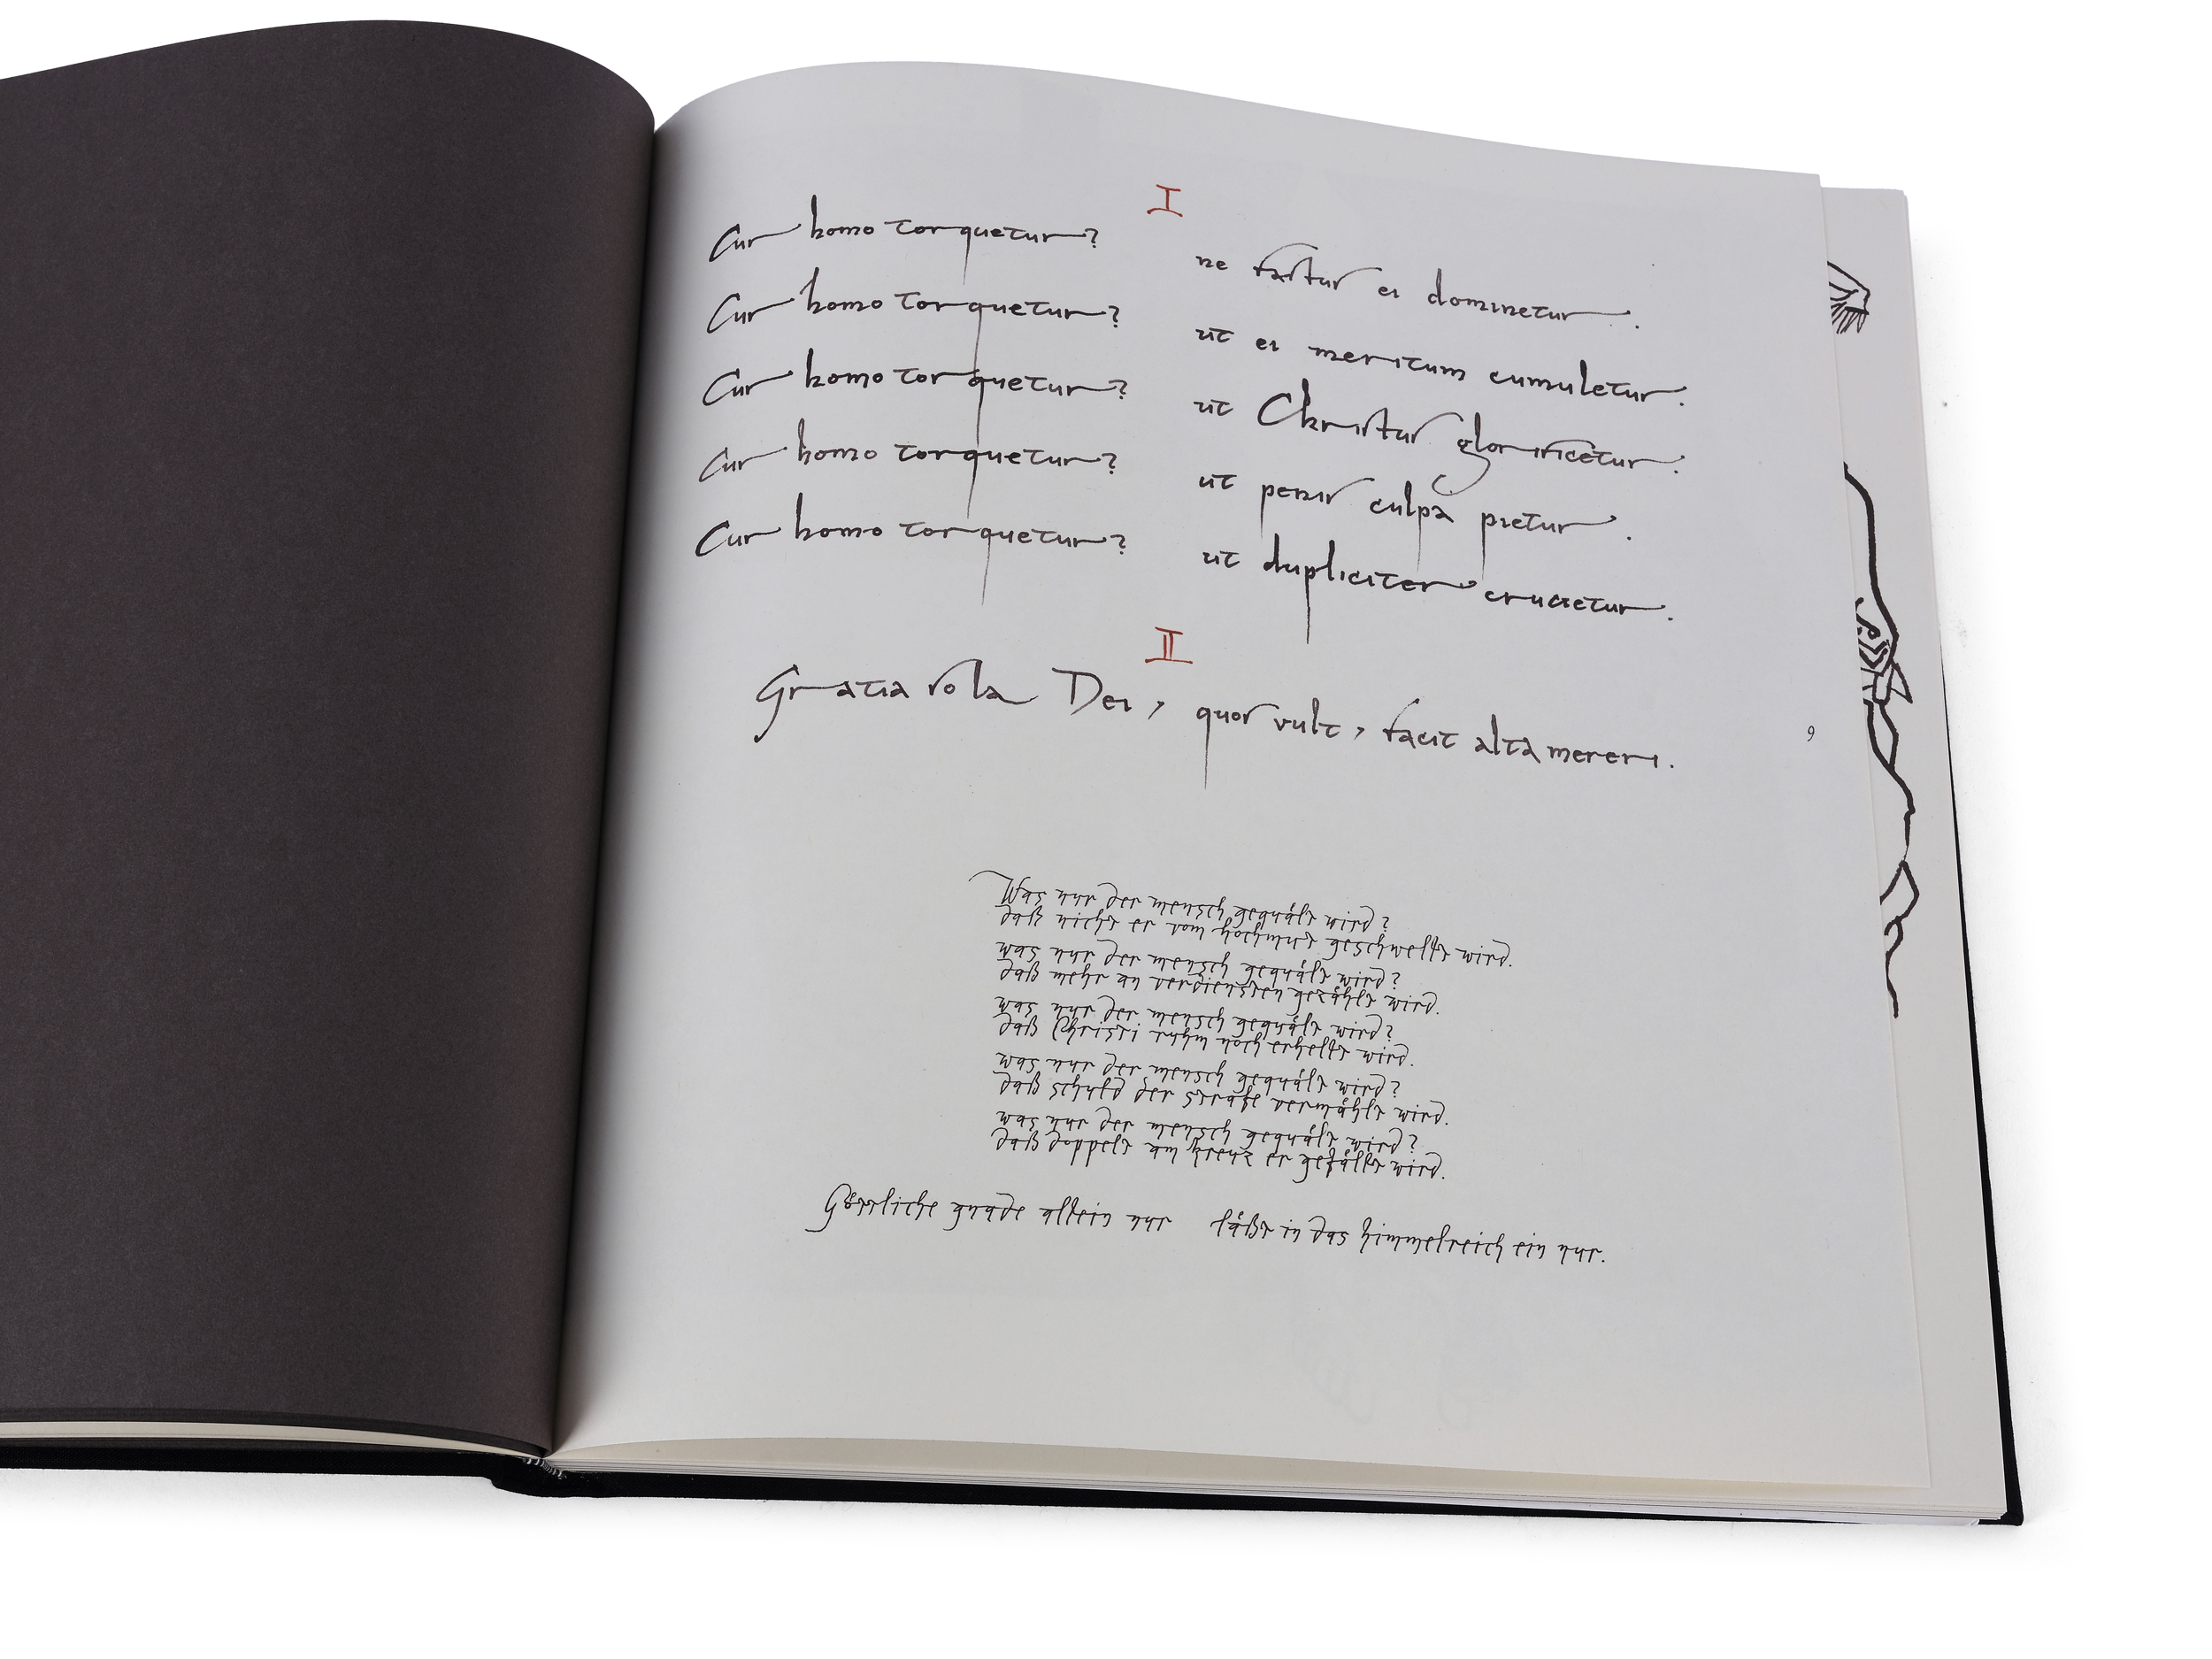 I
Cur homo torquetur? ne fastus ei dominetur.
Cur homo torquetur? ut ei meritum cumuletur.
Cur homo torquetur? ut Christus glorificetur.
Cur homo torquetur? ut penis culpa pietur.
Cur homo torquetur? ut dupliciter crucietur.
II
Gratia sola Dei, quos vult, facit alta mereri.
9
Was nur der mensch gequält wird?
daß nicht er vom hochmut geschwellt wird.
was nur der mensch gequält wird?
daß mehr an verdiensten gezählt wird.
was nur der mensch gequält wird?
daß Christi ruhm noch erhellt wird.
was nur der mensch gequält wird?
daß schuld der strafe vermählt wird.
was nur der mensch gequält wird?
daß doppelt am kreuz er gefällt wird.
Göttliche gnade allein nur läßt in das himmelreich ein nur.